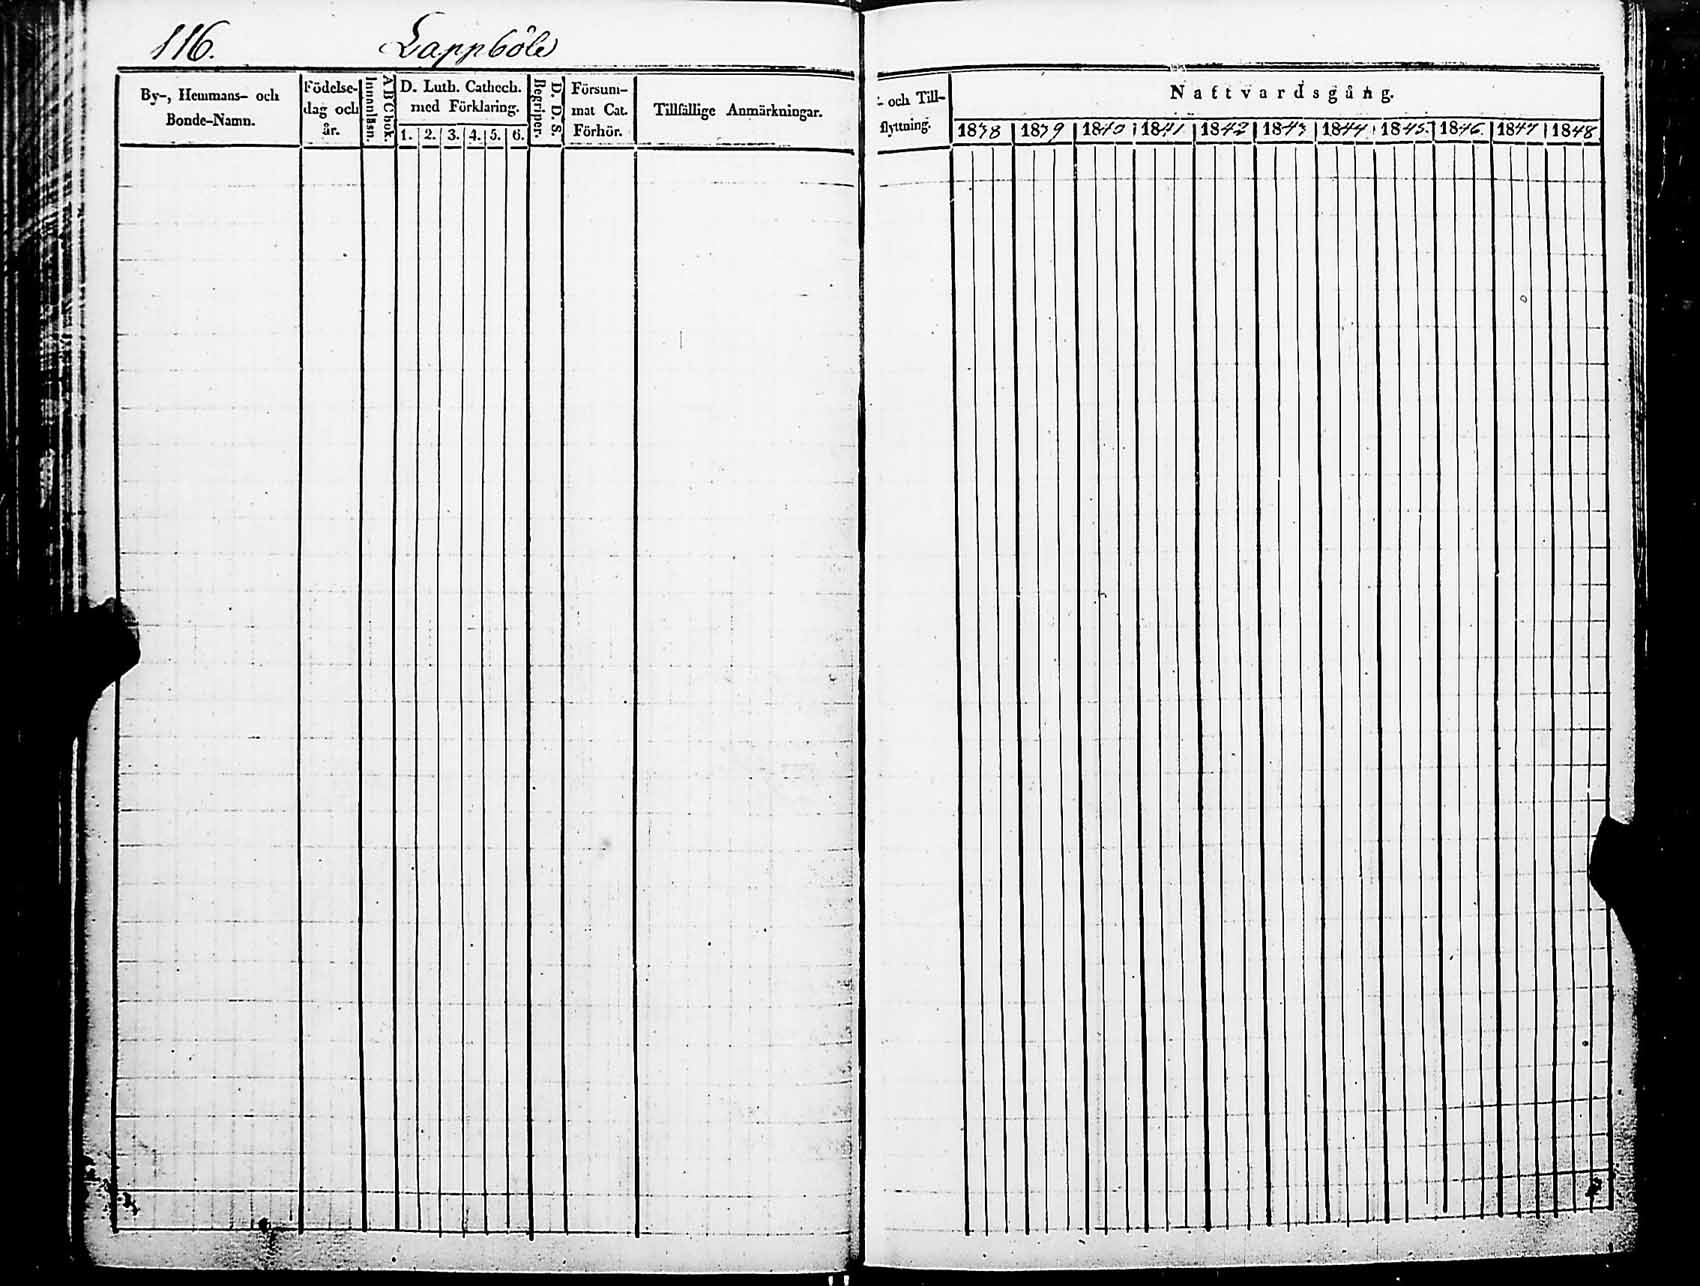 116. Lappböle
By-, Hemmans- och
Bonde-Namn.
Födelse-
dag och
år.
Innanläsn.
A B C bok.
D. Luth. Cathech.
med Förklaring.
1. 2. 3. 4. 5. 6.
Begriper.
D. D. S.
Försum-
mat Cat.
Förhör.
Tillfällige Anmärkningar.
- och Till-
flyttning.
Nattvardsgång.
1838 1839 1840 1841 1842 1843 1844 1845 1846 1847 1848